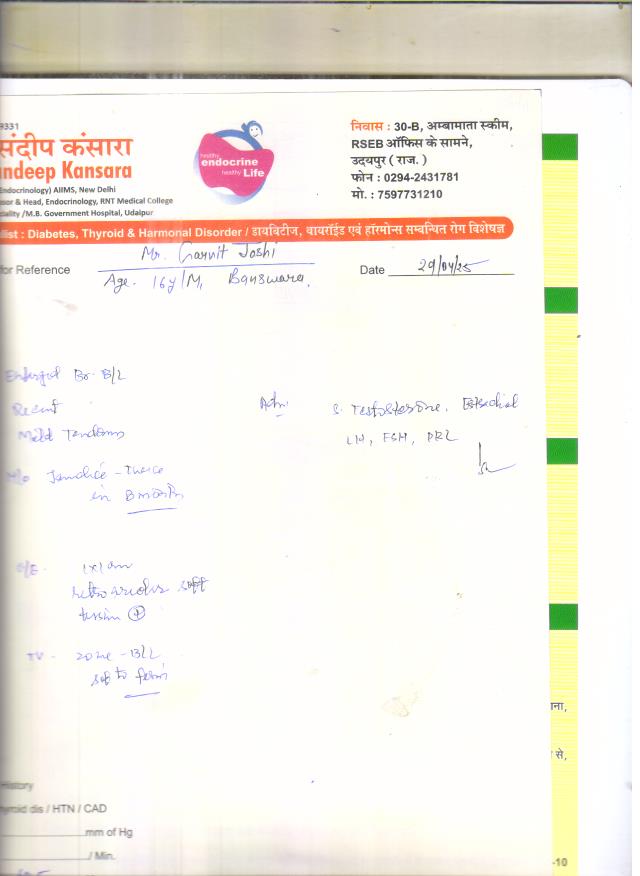 9331
संदीप कंसारा
ndeep Kansara
Endocrinology) AIIMS, New Delhi
sor & Head, Endocrinology, RNT Medical College
ciality /M.B. Government Hospital, Udaipur
healthy
endocrine
healthy Life
निवास : 30-B, अम्बामाता स्कीम,
RSEB ऑफिस के सामने,
उदयपुर ( राज. )
फोन : 0294-2431781
मो. : 7597731210
list : Diabetes, Thyroid & Harmonal Disorder / डायबिटीज, थायरॉईड एवं हॉरमोन्स सम्बन्धित रोग विशेषज्ञ
Mr. Garvit Joshi
for Reference
Date 29/04/25
Age. 16y/M, Banswara.
Enlarged Br. B/L
Recent
Adv.
S. Testosterone,
Mild
LH, FSH, PRL
H/o - Twice
in
O/E -
soft
+
TV -
B/L
to
History
hyroid dis / HTN / CAD
mm of Hg
/ Min.
ाना,
से,
-10